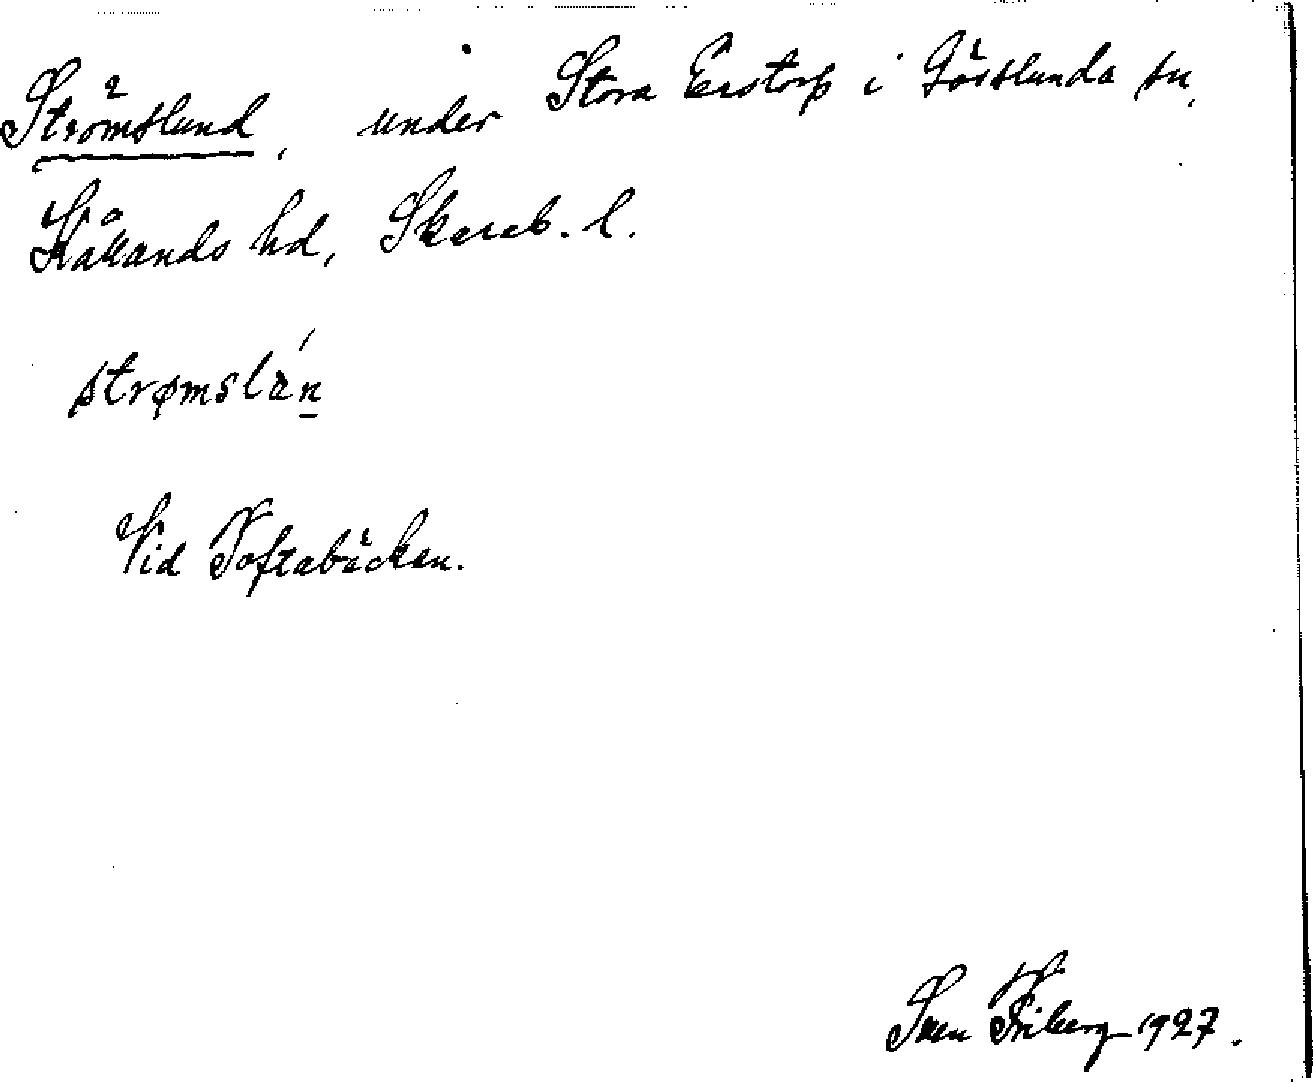 Strömslund, under Stora Eastorp i Gösslunda sn,
Kållands hd, Skarab. l.
strømslan
Vid Toftabäcken.
Sven Friberg 1927.